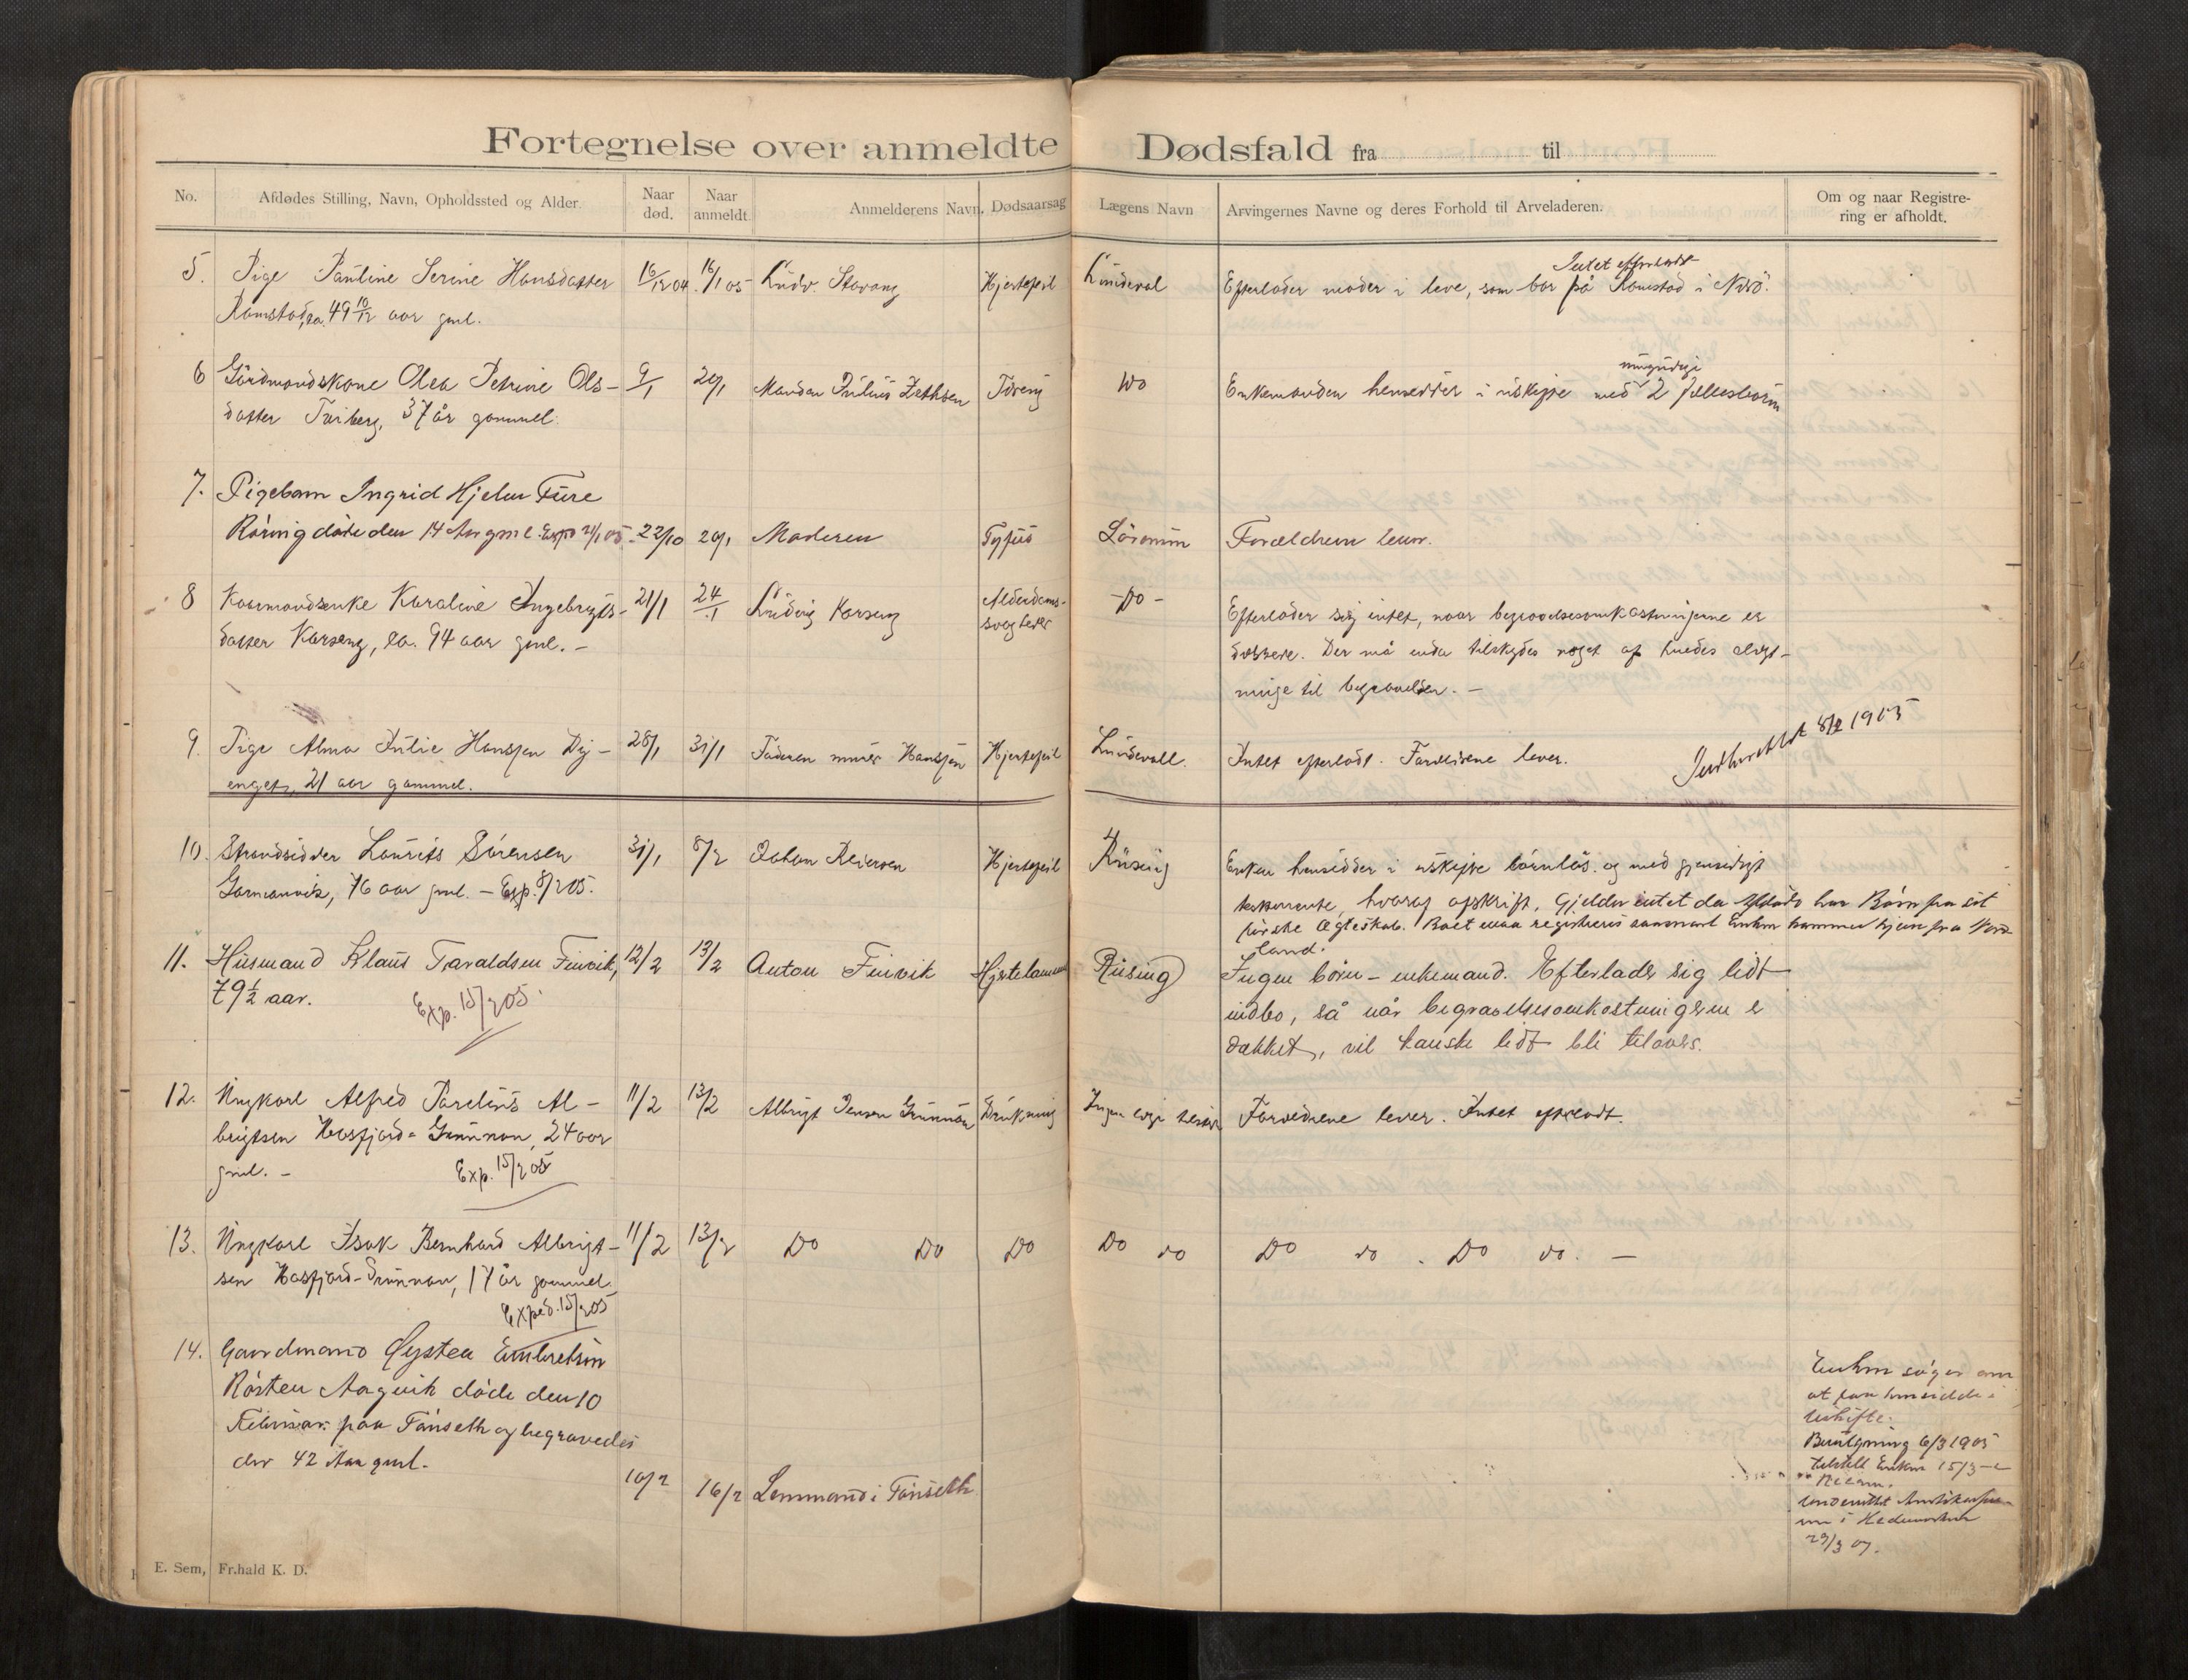 Fortegnelse over anmeldte Dødsfald fra til
No. Afdødes Stilling, Navn, Opholdssted og Alder. Naar død. Naar anmeldt. Anmelderens Navn. Dødsaarsag Lægens Navn Arvingernes Navne og deres Forhold til Arveladeren. Om og naar Registrering er afholdt.
5. Pige Pauline Serine Hansdatter 16/12 04 16/1 05 Ludv. Stavang Hjertefeil Lindeval
Intet efterladt
Efterlader moder i leve, som bor på Ramstad i
Ramstad, ca. 49 10/12 aar gml.
6 Gårdmandskone Olea Petrine Ols- 9/1 20/1 Manden Julius Do
umyndige
Enkemanden hensidder i uskifte med 2 fellesbørn
datter 37 år gammel.
7. Pigebarn Ingrid Hjelm Fure
Röring döde den 14 Aar gml. Exp 21/1 05. 22/10 20/1 Moderen Tyfus Forældrene lever.
8 Kaarmandsenke Karoline Ingebrigts- 21/1 24/1 Ludvig Karseng Alderdoms- -Do-
svaghed
datter Karseng, ca. 94 aar gml. -
Efterlader sig intet, naar begravelsesomkostningerne er
Der må enda tilskydes noget af
til begravelsen. -
9. Pige Alma Julie Hansen 28/1 31/1 Faderen Hansen Hjertefeil Lindevall. Intet efterladt. Foreldrene lever.
8/2 1905
21 aar gammel.
10. Strandsidder Laurits Sörensen 31/1 8/2 Johan Reiersen Hjertefeil Rüsing Enken hensidder i uskifte börnlös og med gjensidigt
76 aar gml. - Exp. 8/2 05.
hvoraf afskrift. Gjelder intet da Afdöde har Börn fra sit
förste Ægteskab. Boet maa registreres saasnart Enken kommer hjem fra Nord-
land.
11. Husmand Klaus Taraldsen Finvik, 12/2 13/2 Anton Finvik Rüsing Ingen börn - enkemand. Efterlader sig lidt
79 1/2 aar.
Exp. 15/2 05.
indbo, så når begravelsesomkostningerne er
dækket, vil kanske lidt bli tilovers.
12. Ungkarl Alfred Parelius Al- 11/2 13/2 Albrigt Jensen Grunnan Drukning Ingen Foreldrene lever. Intet efterladt.
brigtsen Hasfjord-Grunnan, 24 aar
gml. -
Exp. 15/2 05
13. Ungkarl Isak Bernhard Albrigt- 11/2 13/2 Do Do Do Do do Do do. Do do. -
sen Hasfjord-Grunnan, 17 år gammel.
Exped. 15/2 05
14. Gaardmand Öystein Embretsen
Aagvik döde den 10
Februar paa Tönseth og begravedes
der 42 Aar gml.
10/2 16/2 Lensmand i Tönseth
Enken söger om
at faa hensidde i
Uskifte.
Bevilgning 6/3 1905
tilstillt Enken 15/3
i Hedemarken
29/3 07.
E. Sem, Fr.hald K. D.